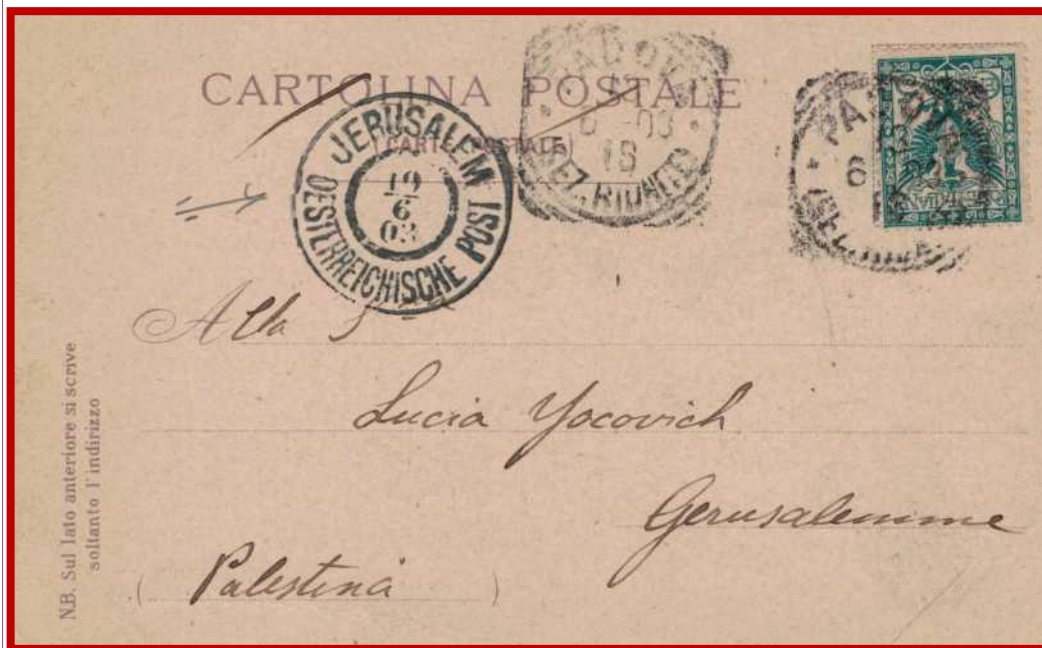 CARTOLINA POSTALE
(CARTE POSTALE)
JERUSALEM
19
6
03
OESTERREICHISCHE POST
PADOVA
6 - 03
PADOVA
6
Alla S
Lucia Yocovich
Gerusalemme
( Palestina )
N.B. Sul lato anteriore si scrive
soltanto l'indirizzo